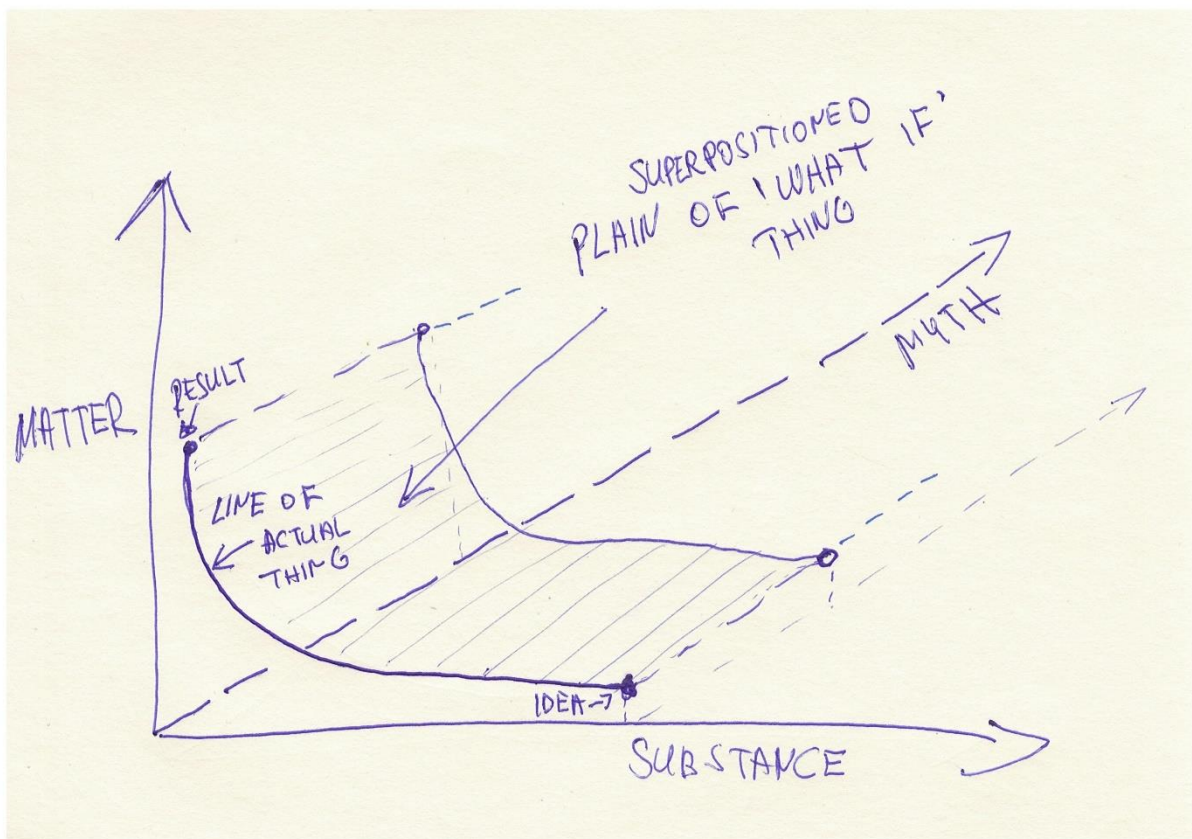 SUPERPOSITIONED
PLAIN OF 'WHAT IF'
THING
MYTH
RESULT
MATTER
LINE OF
ACTUAL
THING
IDEA→
SUBSTANCE